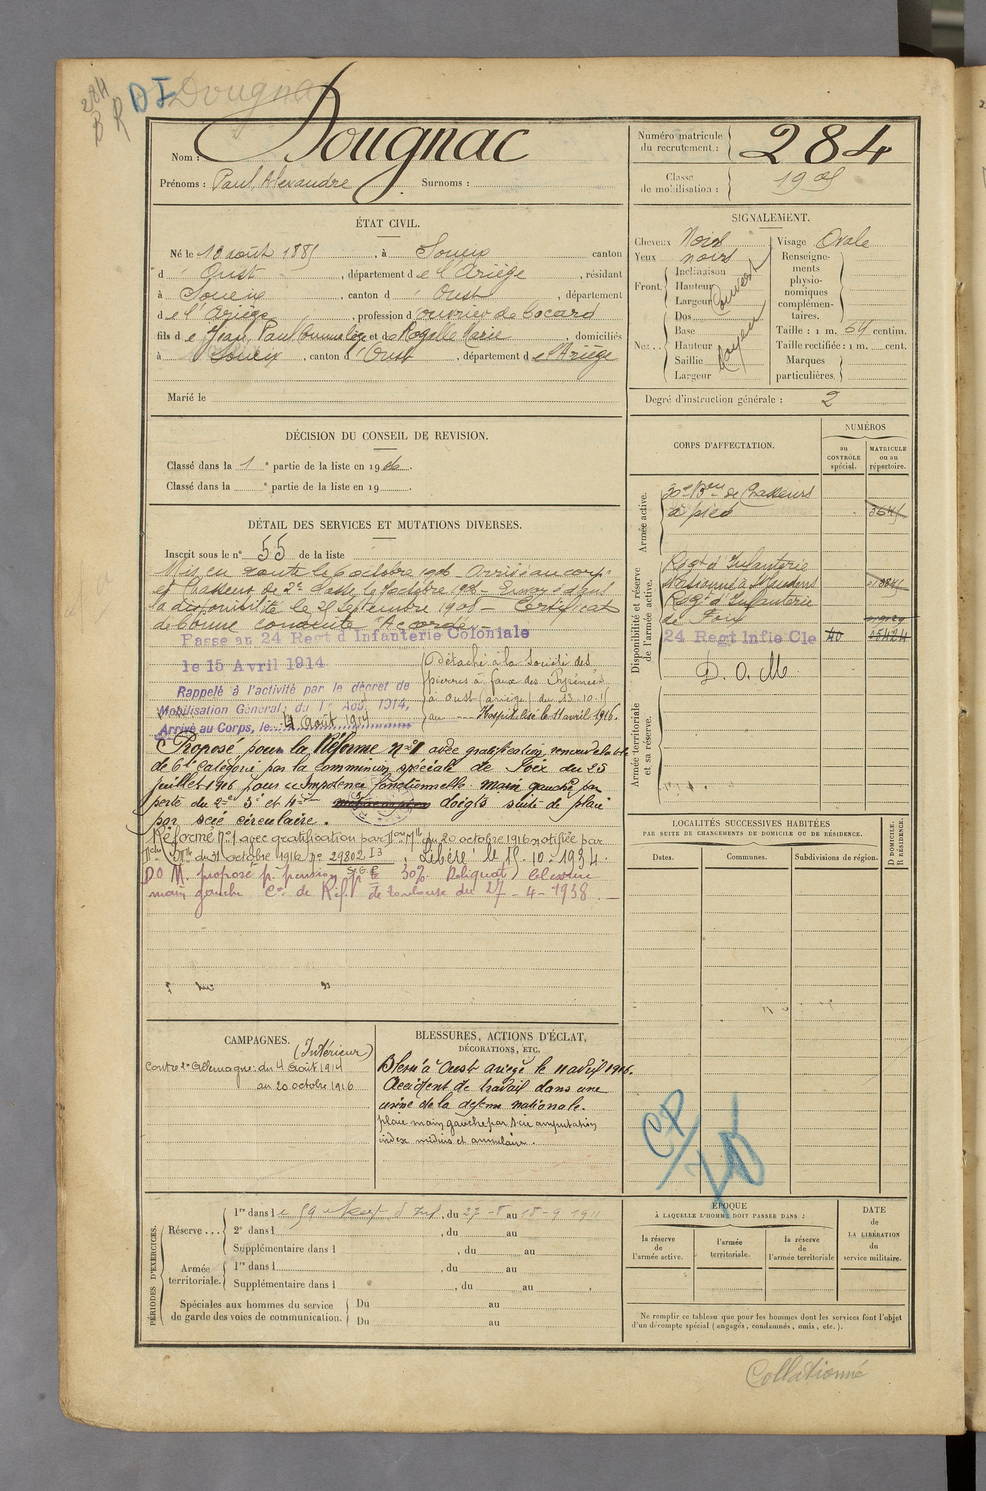 284
B R
DI Dougnac
Nom : Dougnac
Prénoms : Paul, Alexandre Surnoms :
Numéro matricule du recrutement : 284
Classe de mobilisation : 1905
ÉTAT CIVIL.
Né le 10 août 1885, à Soueix canton
d'Oust, département de l'Ariège, résidant
à Soueix, canton d'Oust, département
de l'Ariège, profession d'ouvrier de bocard
fils de Jean, Paul et de Rogalle Marie domiciliés
à Soueix, canton d'Oust, département de l'Ariège
Marié le
SIGNALEMENT.
Cheveux Noirs
Yeux noirs
Front. Inclinaison
Hauteur
Largeur
Couvert
Nez.. Dos
Base
Hauteur
Saillie
Largeur
Moyen
Visage Ovale
Renseignements physionomiques complémentaires.
Taille : 1 m. 64 centim.
Taille rectifiée : 1 m. cent.
Marques particulières.
Degré d'instruction générale : 2
DÉCISION DU CONSEIL DE REVISION.
Classé dans la 1e partie de la liste en 1906.
Classé dans la e partie de la liste en 19
DÉTAIL DES SERVICES ET MUTATIONS DIVERSES.
Inscrit sous le n° 55 de la liste
Mis en route le 6 octobre 1906 Arrivé au corps
et Chasseur de 2e classe le 7 octobre 1906 - Envoyé dans
la disponibilité le 25 septembre 1908 - Certificat
de bonne conduite "Accordé"
Passé au 24 Regt d'Infanterie Coloniale
le 15 Avril 1914
Rappelé à l'activité par le décret de
Mobilisation Général; du 1er Août 1914,
Arrivé au Corps, le 4 août 1914
Détaché à la Société des
pierres à faux des Pyrénées
à Oust (ariège) du 13-10-15
au --- Hospitalisé le 11 avril 1916.
Proposé pour la Réforme n°1 avec gratification renouvelable
de 6e Catégorie par la commission spéciale de Foix du 25
juillet 1916 pour "Impotence fonctionnelle main gauche par
perte du 2e 3e et 4e doigts suite de plaie
par scie circulaire.
Réformé n°1 avec gratification par Don Mlle du 20 octobre 1916 notifiée par
Mlle du 31 octobre 1916 n° 29802 I3 ; Libéré le 15-10-1934.
DOM. proposé p. pension 30% Reliquat blessure
main gauche C.on de Réf. de Toulouse du 27-4-1938.
CORPS D'AFFECTATION.
NUMÉROS
au CONTRÔLE spécial.
MATRICULE ou au répertoire.
Armée active.
30e Bon de Chasseurs
à pied
3645
Disponibilité et réserve de l'armée active.
Regt d'Infanterie
Stationné à Mandens
Regt d'Infanterie
de Foix
24 Regt Infie Cle
D. O. M.
Armée territoriale et sa réserve.
LOCALITÉS SUCCESSIVES HABITÉES
PAR SUITE DE CHANGEMENTS DE DOMICILE OU DE RÉSIDENCE.
Dates.
Communes.
Subdivisions de région.
D DOMICILE. R RÉSIDENCE.
CP/
CAMPAGNES.
(Intérieur)
Contre l'Allemagne : du 4 août 1914
au 20 octobre 1916
BLESSURES, ACTIONS D'ÉCLAT,
DÉCORATIONS, ETC.
Blessé à Oust ariège le 11 avril 1916.
Accident de travail dans une
usine de la défense nationale.
plaie main gauche par scie amputation
index médius et annulaire.
PÉRIODES D'EXERCICES.
Réserve... 1re dans le 59e Regt d'Inf., du 27-8 au 18-9 1911
2e dans l , du au
Supplémentaire dans l , du au
Armée territoriale. 1re dans l , du au
Supplémentaire dans l , du au
Spéciales aux hommes du service de garde des voies de communication. Du au
Du au
ÉPOQUE
À LAQUELLE L'HOMME DOIT PASSER DANS :
la réserve de l'armée active.
l'armée territoriale.
la réserve de l'armée territoriale
DATE de LA LIBÉRATION du service militaire.
Ne remplir ce tableau que pour les hommes dont les services font l'objet
d'un décompte spécial (engagés, condamnés, omis, etc.).
Collationné